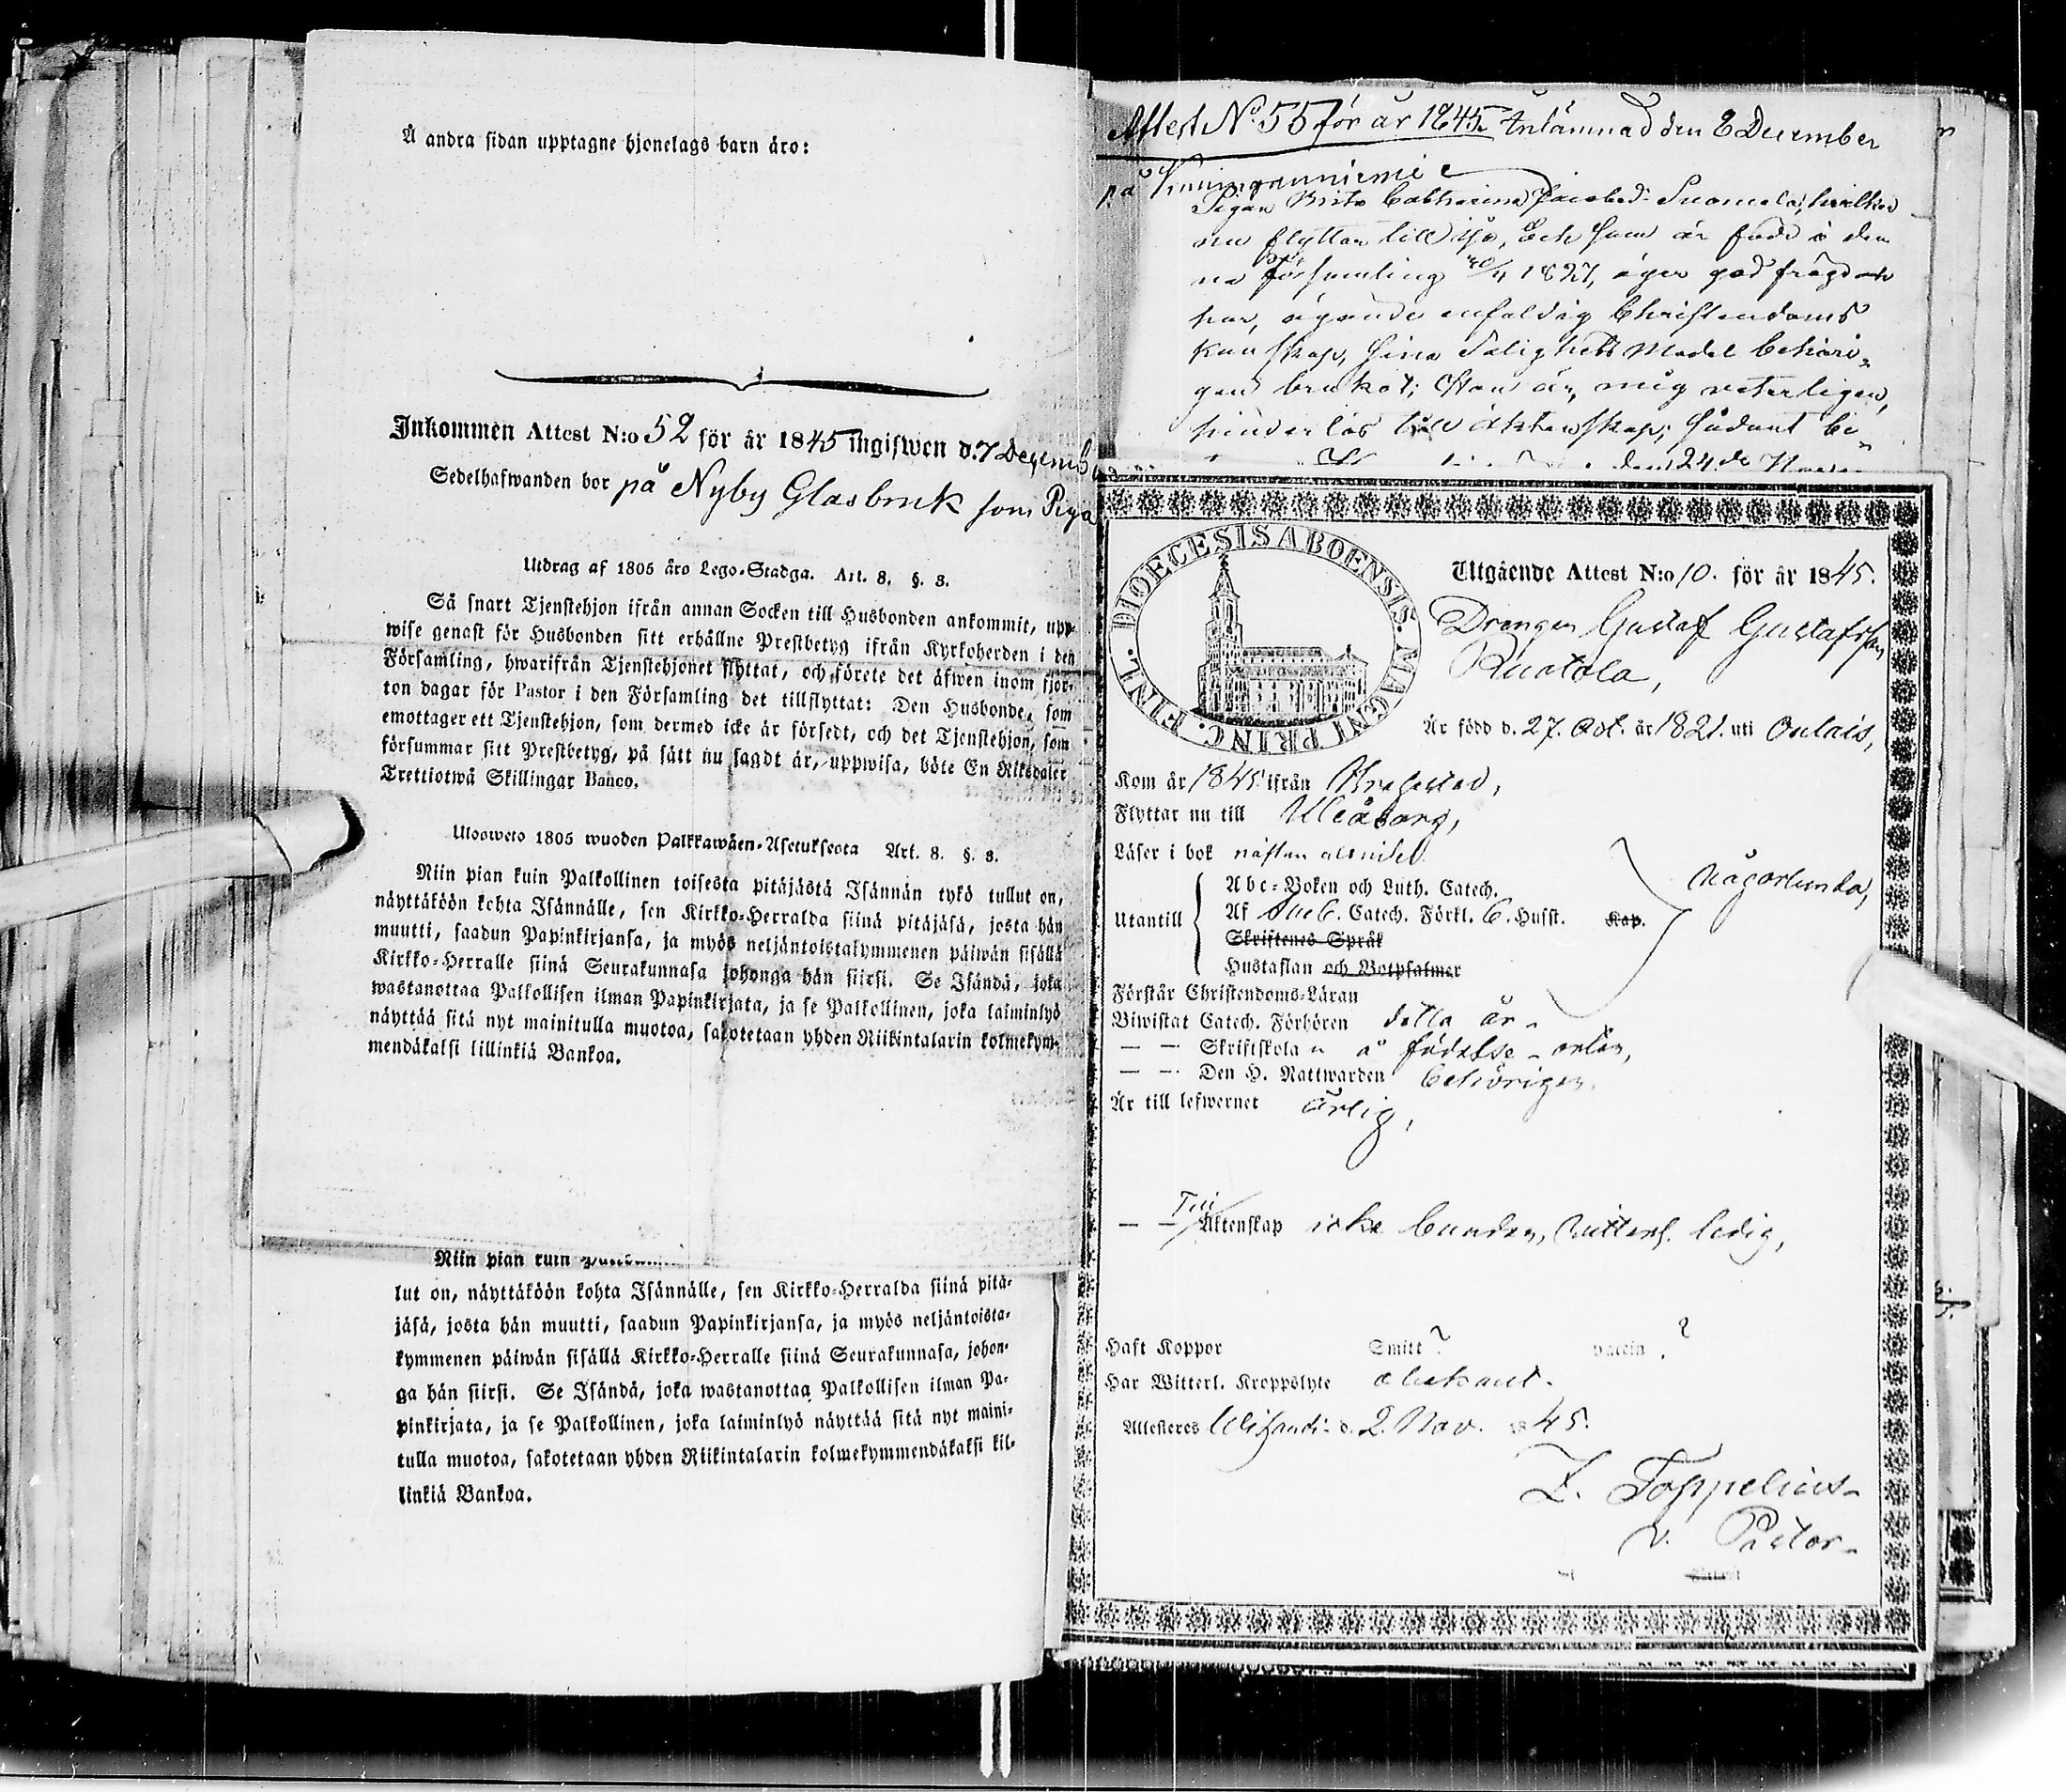 Å andra sidan upptagne hjonelags barn äro:
Inkommen Attest N:o 52 för år 1845 ingifwen d. 7 Decemb
Sedelhafwanden bor på Nyby Glasbruk som Piga
Utdrag af 1805 års Lego-Stadga. Art. 8. §. 8.
Så snart Tjenstehjon ifrån annan Socken till Husbonden ankommit, upp-
wise genast för Husbonden sitt erhållne Prestbetyg ifrån Kyrkoherden i den
Församling, hwarifrån Tjenstehjonet flyttat, och förete det äfwen inom fjor-
ton dagar för Pastor i den Församling det tillflyttat: Den Husbonde, som
emottager ett Tjenstehjon, som dermed icke är försedt, och det Tjenstehjon, som
försummar sitt Prestbetyg, på sätt nu sagdt är, uppwisa, böte En Riksdaler
Trettiotwå Skillingar Banco.
Utosweto 1805 wuoden Palkkawäen-Asetuksesta Art. 8. §. 8.
Niin pian kuin Palkollinen toisesta pitäjästä Isännän tykö tullut on,
näyttäköön kohta Isännälle, sen Kirkko-Herralda siinä pitäjäsä, josta hän
muutti, saadun Papinkirjansa, ja myös neljäntoistakymmenen päiwän sisällä
Kirkko-Herralle siinä Seurakunnasa johonga hän siirsi. Se Isändä, joka
wastanottaa Palkollisen ilman Papinkirjata, ja se Palkollinen, joka laiminlyö
näyttää sitä nyt mainitulla muotoa, sakotetaan yhden Riikintalarin kolmekym-
mendäkaksi lillinkiä Bankoa.
Niin pian kuin
lut on, näyttäköön kohta Isännälle, sen Kirkko-Herralda siinä pitä-
jäsä, josta hän muutti, saadun Papinkirjansa, ja myös neljäntoista-
kymmenen päiwän sisällä Kirkko-Herralle siinä Seurakunnasa, johon-
ga hän siirsi. Se Isändä, joka wastanottaa Palkollisen ilman Pa-
pinkirjata, ja se Palkollinen, joka laiminlyö näyttää sitä nyt maini-
tulla muotoa, sakotetaan yhden Riikintalarin kolmekymmendäkaksi kil-
linkiä Bankoa.
Attest No 55 för år 1845 Inlämnad den 8 December
på
Pigan Brita Catharina Jacobsdr Suomela, hvilken
nu flyttar till Ijo, Och som är född i den
na församling 20/11 1827, äger god frägd och
har, ägande enfaldig Christendoms
kunskap, sina Salighets Medel behöri-
gen brukat; Hon är, mig veterligen,
hinderlös till äktenskap; sådant be-
den 24de
DIOECESIS ABOENSIS. MAGNI PRINC. FINL.
Utgående Attest N:o 10. för år 1845.
Drengen Gustaf Gustafsson
Ruotola,
Är född d. 27. Oct. år 1821. uti Oulais,
Kom år 1845 ifrån
Flyttar nu till Uleåborg,
Läser i bok nästan
Utantill
Abc-Boken och Luth. Catech.
Af Sveb. Catech. Förkl. 6. Husst. Kap.
Skriftenes Språk
Hustaflan och Botpsalmer
någorlunda,
Förstår Christendoms-Läran
Biwistat Catech. Förhören detta år
— — Skriftskolan å födelse-orten,
— — Den H. Nattwarden behörigen,
Är till lefwernet ärlig,
— — Till Äktenskap icke bunden, vitterl. ledig,
Haft Koppor Smitt? Vaccin ?
Har Witterl. Kroppslyte obekant.
Attesteres d. 2. Nov. 1845.
Z. Toppelius
v. Pastor